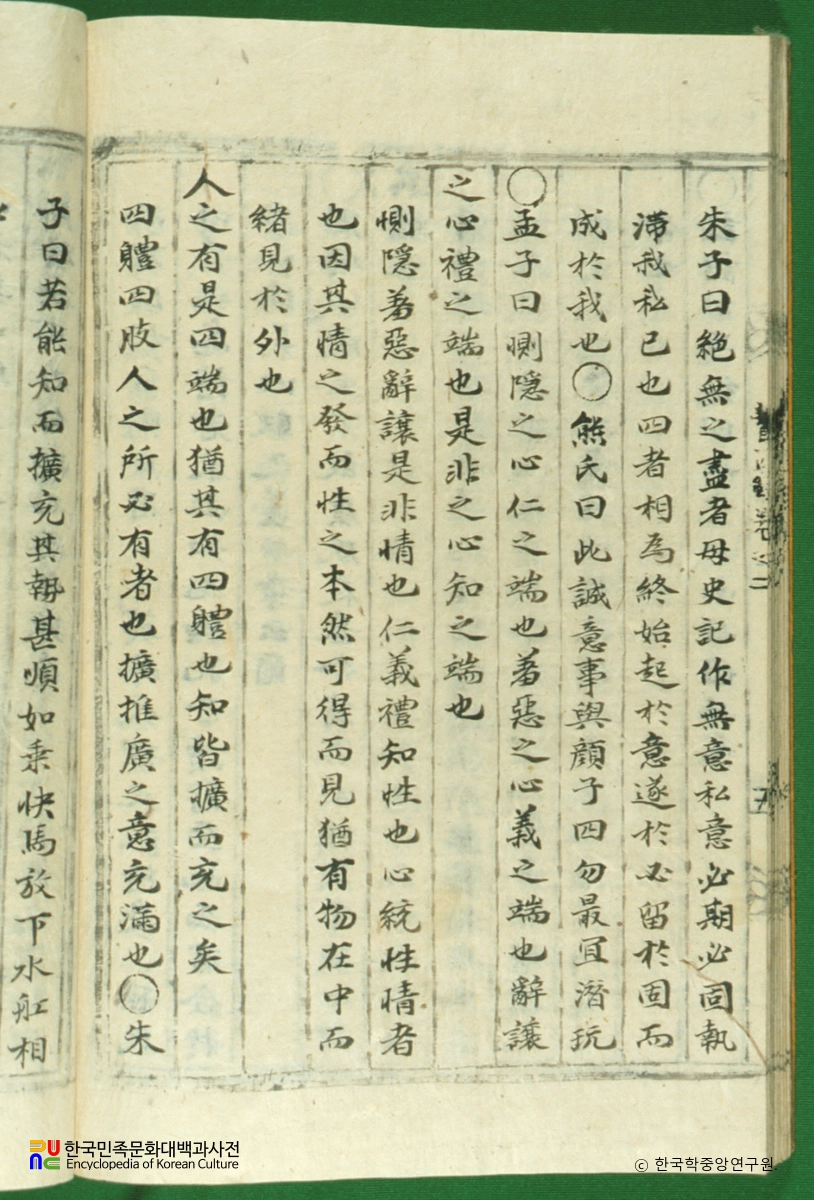 朱子曰絶無之盡者毋史記作無意私意必期必固執
滯我私己也四者相爲終始起於意遂於必留於固而
成於我也○熊氏曰此誠意事與顔子四勿最宜潛玩
○孟子曰惻隱之心仁之端也羞惡之心義之端也辭讓
之心禮之端也是非之心知之端也
惻隱羞惡辭讓是非情也仁義禮知性也心統性情者
也因其情之發而性之本然可得而見猶有物在中而
緖見於外也
人之有是四端也猶其有四體也知皆擴而充之矣
四體四肢人之所必有者也擴推廣之意充滿也○朱
子曰若能知而擴充其勢甚順如乘快馬放下水舡相
한국민족문화대백과사전
Encyclopedia of Korean Culture
ⓒ 한국학중앙연구원